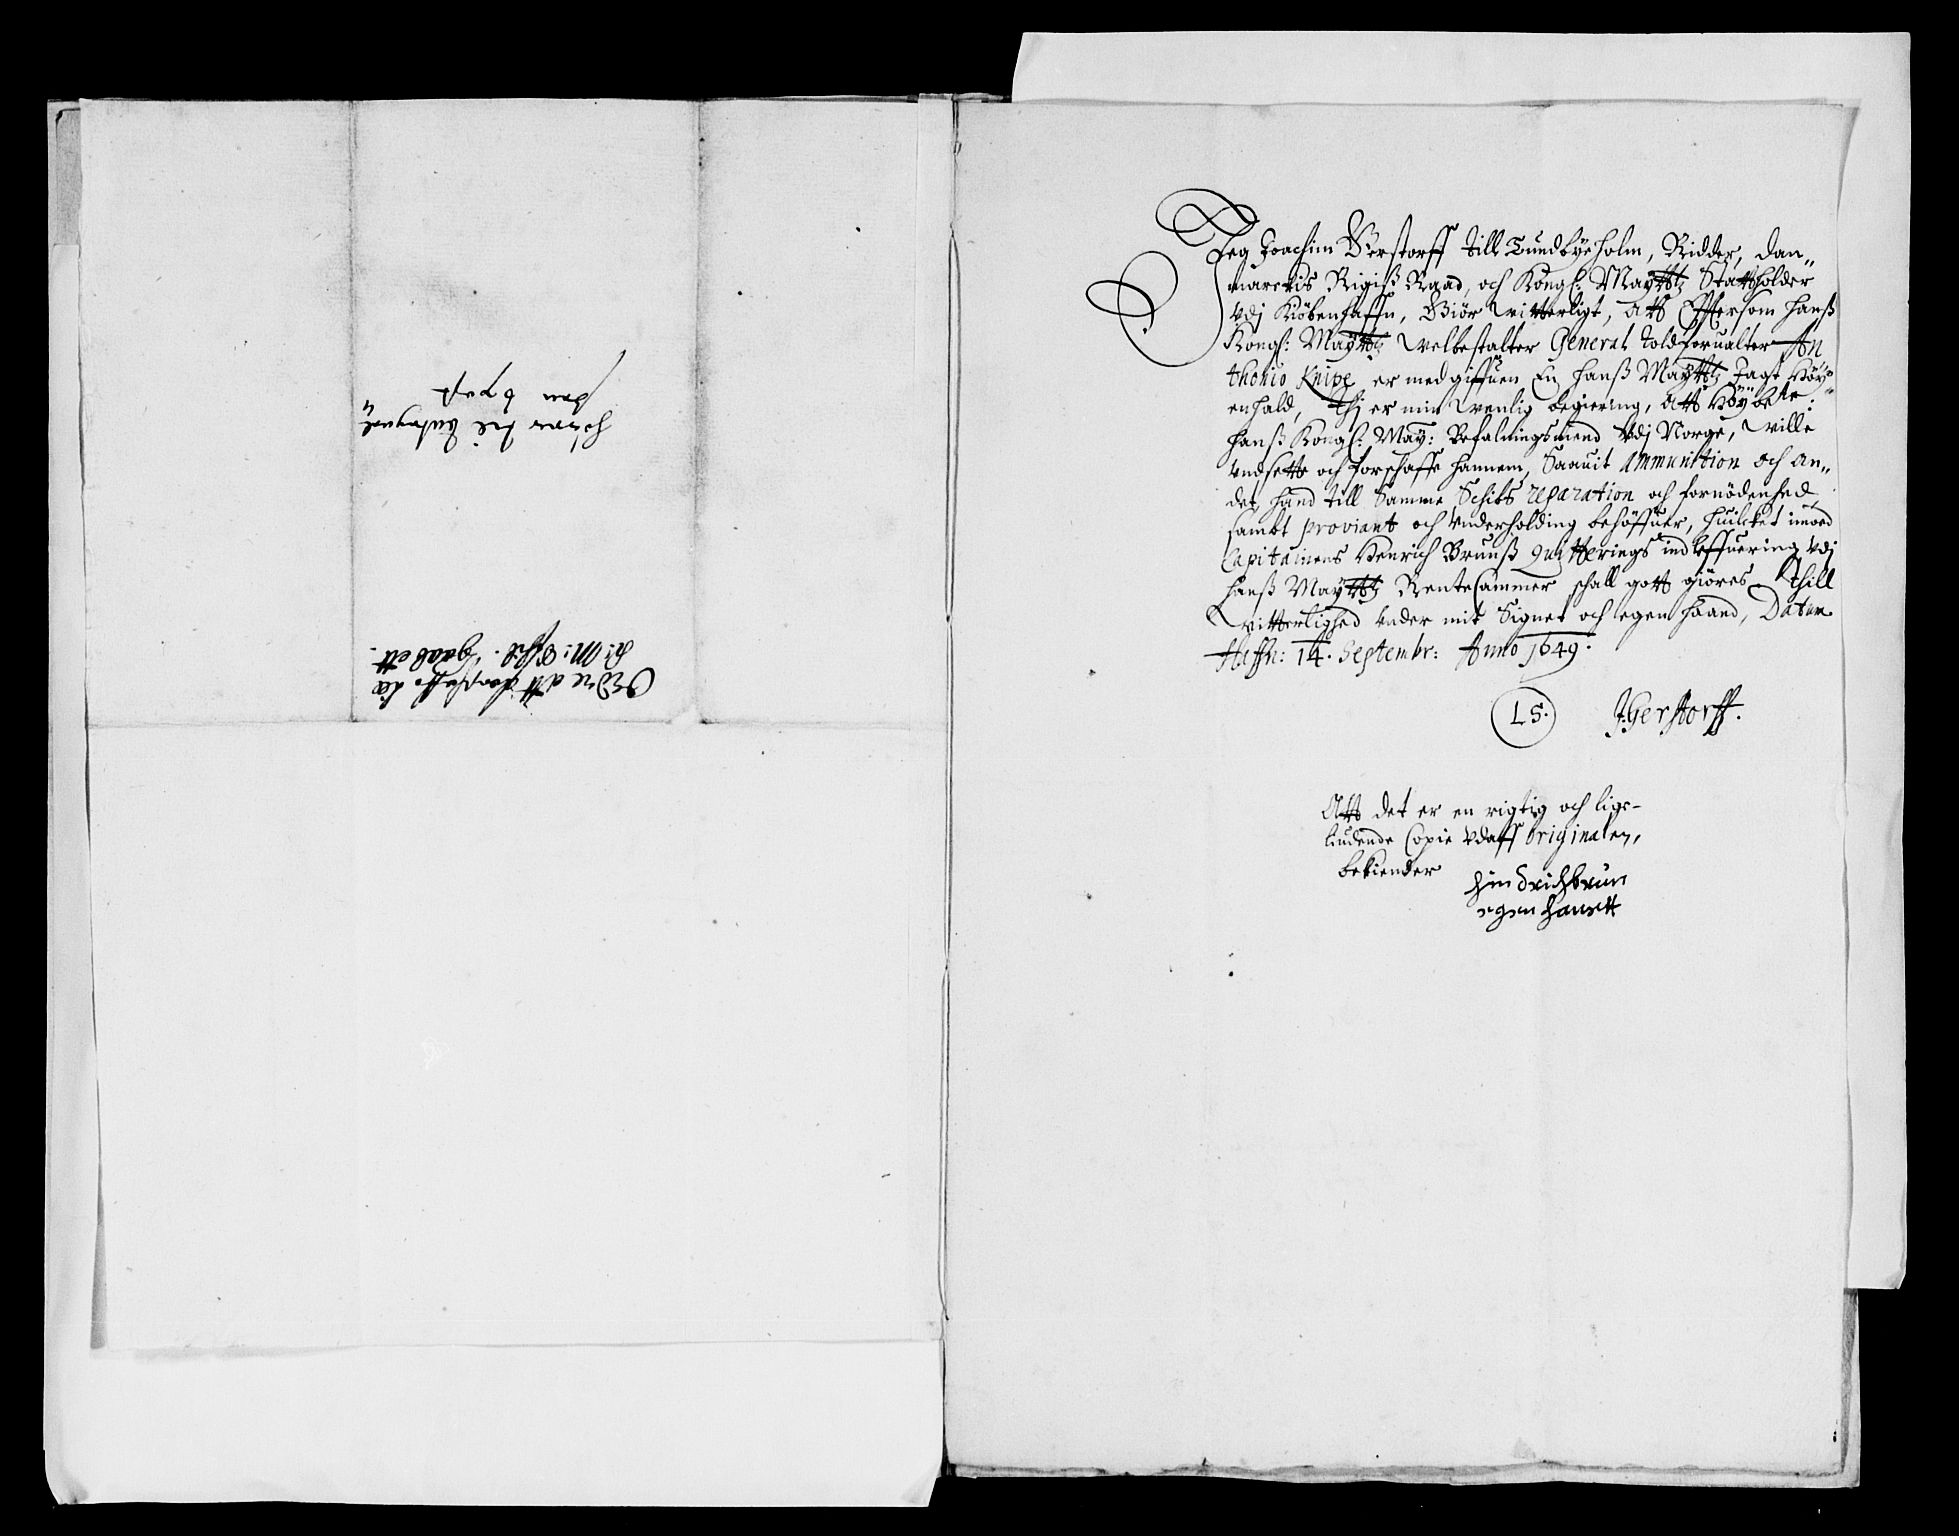 Jeg Joachim Gerstorff till Tundbyeholm, Ridder, Dan„
marckis Rigiß Raad, och Kongl: Maytts Stattholder
vdj Kiöbenhaffn, Giör vitterligt, att Eftersom hanß
Kongl: Maytts velbestalter General Toldforualter An
thonio Knipe er medgiffuen En hanß Maytts Jagt Höy„
enhald, Thj er min venlig begiering, att Höybete:
hanß Kongl: May: Befalningsmend vdj Norge, ville
vndsette och forschaffe hannem, Saauit Ammunition och an„
det, hand till Samme Schibs reparation och fornödenhed
sambt proviant och vnderholding behöffuer, huilcket imod
Capitainens Henrich Brunß quitterings indleffuering vdj
hanß Maytts RenteCammer schall gott giöres Thill
vitterlighed vnder mit Signet och egen haand, Datum
Haffn: 14. Septembr: Anno 1649.
LS.
J:Gerstorff.
Att det er en rigtig och lige-
liudende Copie vdaff originalen,
bekiender
hindrich brun
egen handt